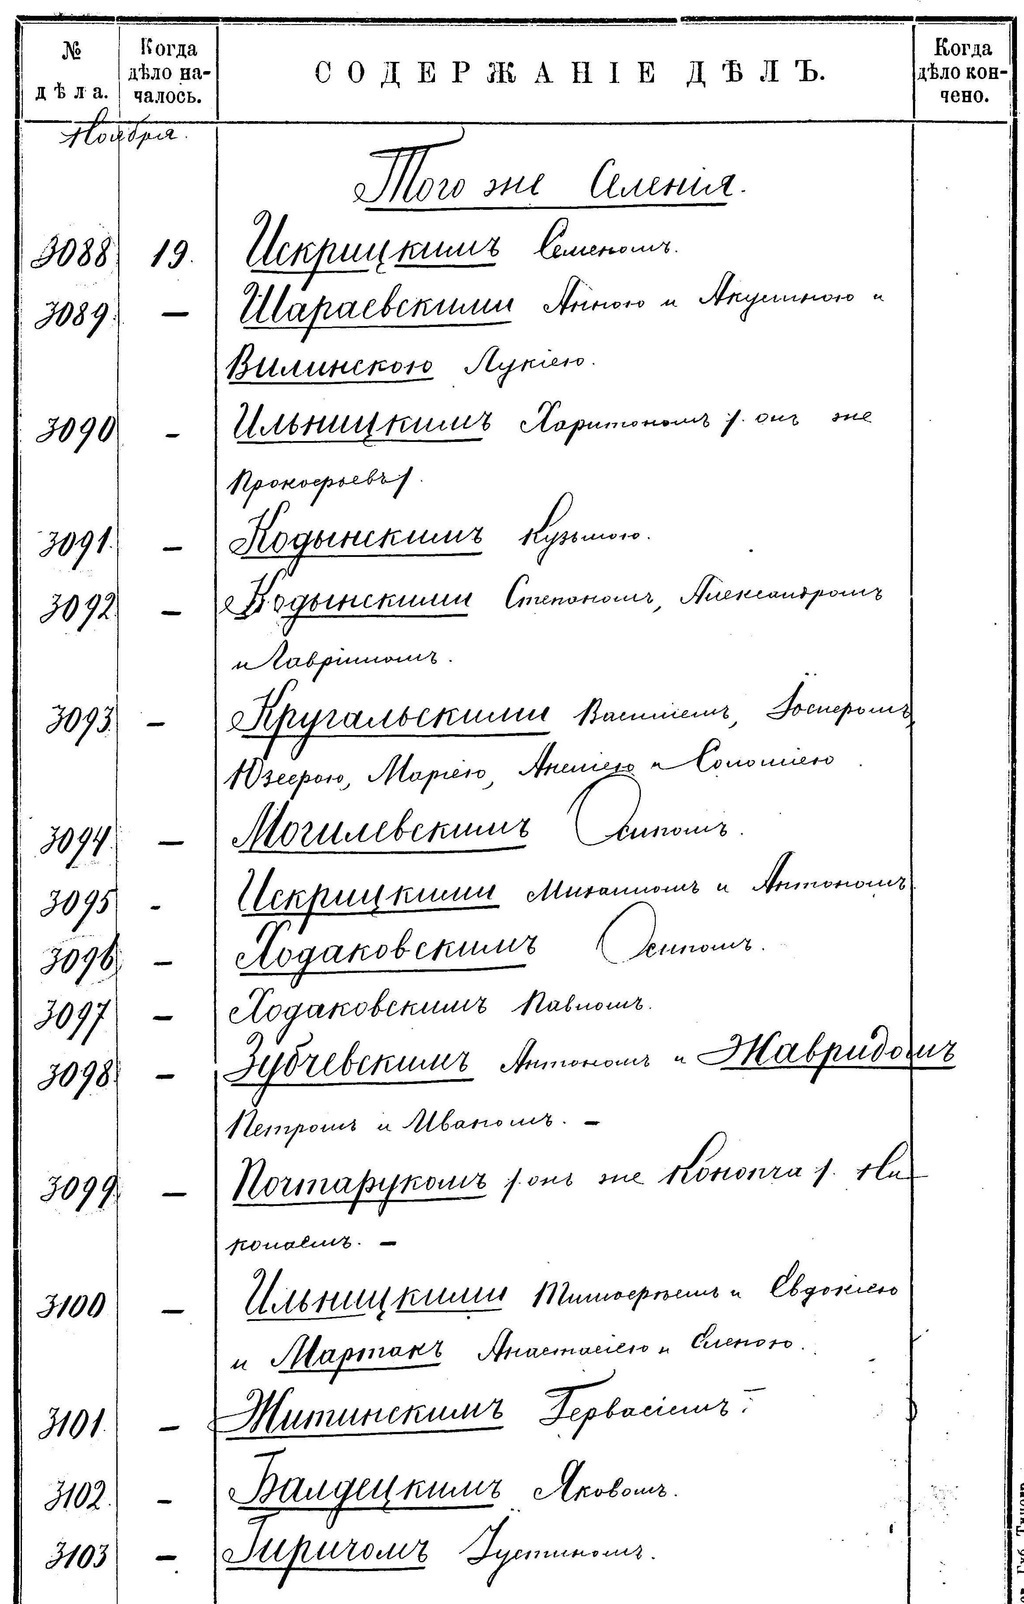 № дѣла. Когда дѣло на- чалось. СОДЕРЖАНІЕ ДѢЛЪ. Когда дѣло кон- чено.
Ноября.
Того же Селенія.
3088 19. Искрицкимъ Семеномъ.
3089 — Шараевскими Анною и Акулиною и
Вилинскою Лукіею.
3090 — Ильницкимъ Харитономъ /. онъ же
Прокофьевъ /.
3091 — Кодынскимъ Кузьмою.
3092 — Кодынскими Степаномъ, Александромъ
и Гавріиломъ.
3093 — Кругальскими Василіемъ, Іосифомъ,
Юзефою, Маріею, Анеліею и Соломіею
3094 — Могилевскимъ Осипомъ.
3095 - Искрицкими Михаиломъ и Антономъ
3096 — Ходаковскимъ Осипомъ.
3097 — Ходаковскимъ Павломъ.
3098 — Зубчевскимъ Антономъ и Жавридомъ
Петромъ и Иваномъ. —
3099 — Почтарукомъ /. онъ же Конопча /. Ни-
колаемъ. —
3100 — Ильницкими Тимофѣемъ и Евдокіею
и Мартакъ Анастасіею и Еленою.
3101 — Житинскимъ Гервасіемъ.
3102 — Балдецкимъ Яковомъ.
3103 — Гиричомъ Іустиномъ.